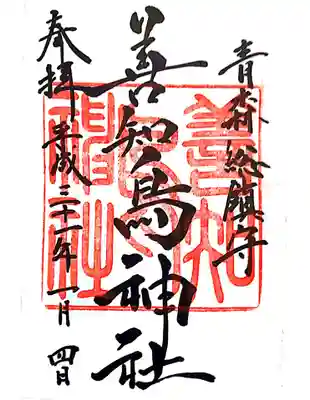 青森総鎮守
善知鳥神社
奉拝 平成三十一年一月四日
善知
鳥
神社